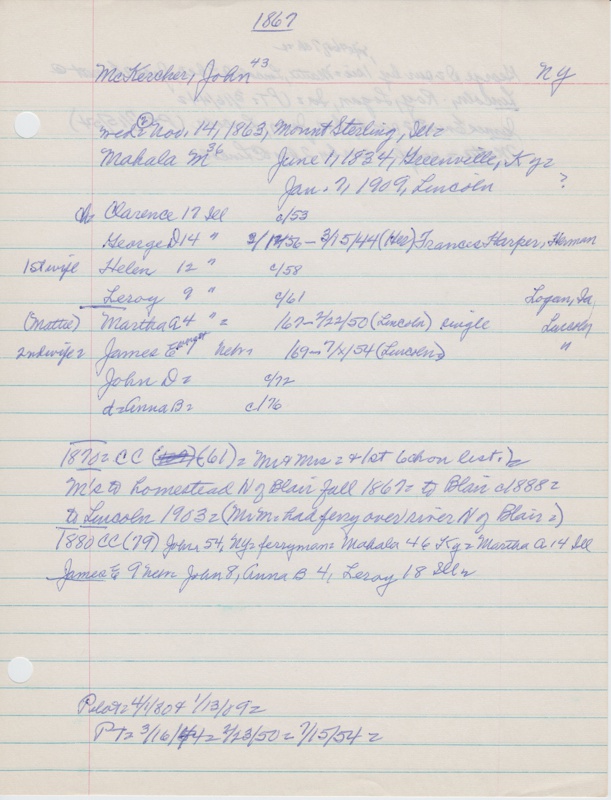 1867
McKercher, John 43 NY
wed (2) Nov. 14, 1863, Mount Sterling, Ill=
Mahala M 36 June 1, 1834, Greenville, Ky=
Jan. 7, 1909, Lincoln ?
ch Clarence 17 Ill c/53
George D 14 " 3/17/56 - 3/15/44 (Her) Frances Harper, Herman
1st wife Helen 12 " c/58
Leroy 9 " c/61 Logan, Ia
(Mattie) Martha A 4 " = /67 - 2/22/50 (Lincoln) single Lincoln
2nd wife = James E Nebr /69 - 7/2/54 (Lincoln) "
John D = c/72
d = Anna B = c/76
1870 = CC (61) = Mr & Mrs = & 1st 6 ch on list. )=
M's to homestead N of Blair fall 1867 = to Blair c1888 =
to Lincoln 1903 = (Mr M = had ferry over river N of Blair =)
1880 CC (79) John 54, NY = ferryman = Mahala 46 Ky = Martha A 14 Ill
James E 9 Neb = John 8, Anna B 4, Leroy 18 Ill =
Pilot = 4/1/80 & 1/13/09 =
PT = 3/16/44 = 2/23/50 = 7/15/54 =